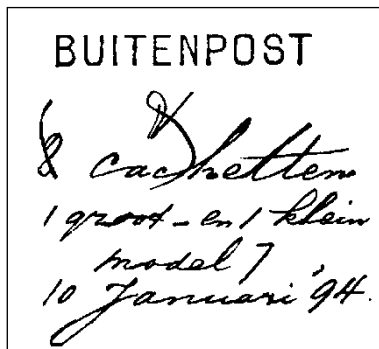 BUITENPOST
& cachetten
1 groot - en 1 klein
model 7
10 Januari '94.